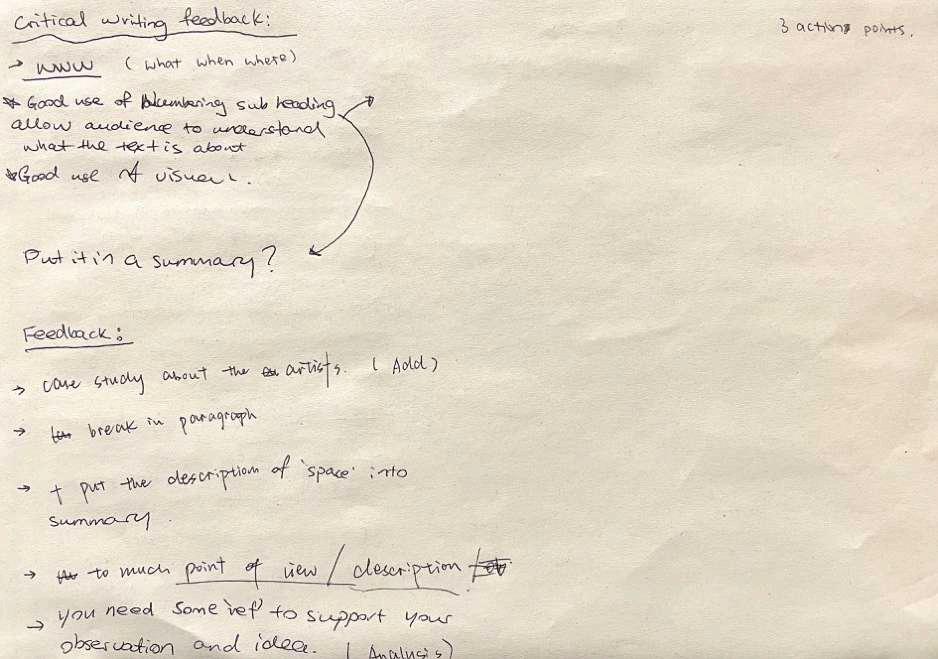 Critical writing feedback:
3 action points.
→ WWW (what when where)
* Good use of Numbering sub heading
allow audience to understand
what the text is about
* Good use of visual.
Put it in a summary?
Feedback:
→ case study about the artists. (Add)
→ break in paragraph
→ + put the description of 'space' into
summary.
→ to much point of view / description /
→ you need some 'ref' to support your
observation and idea. (Analysis)